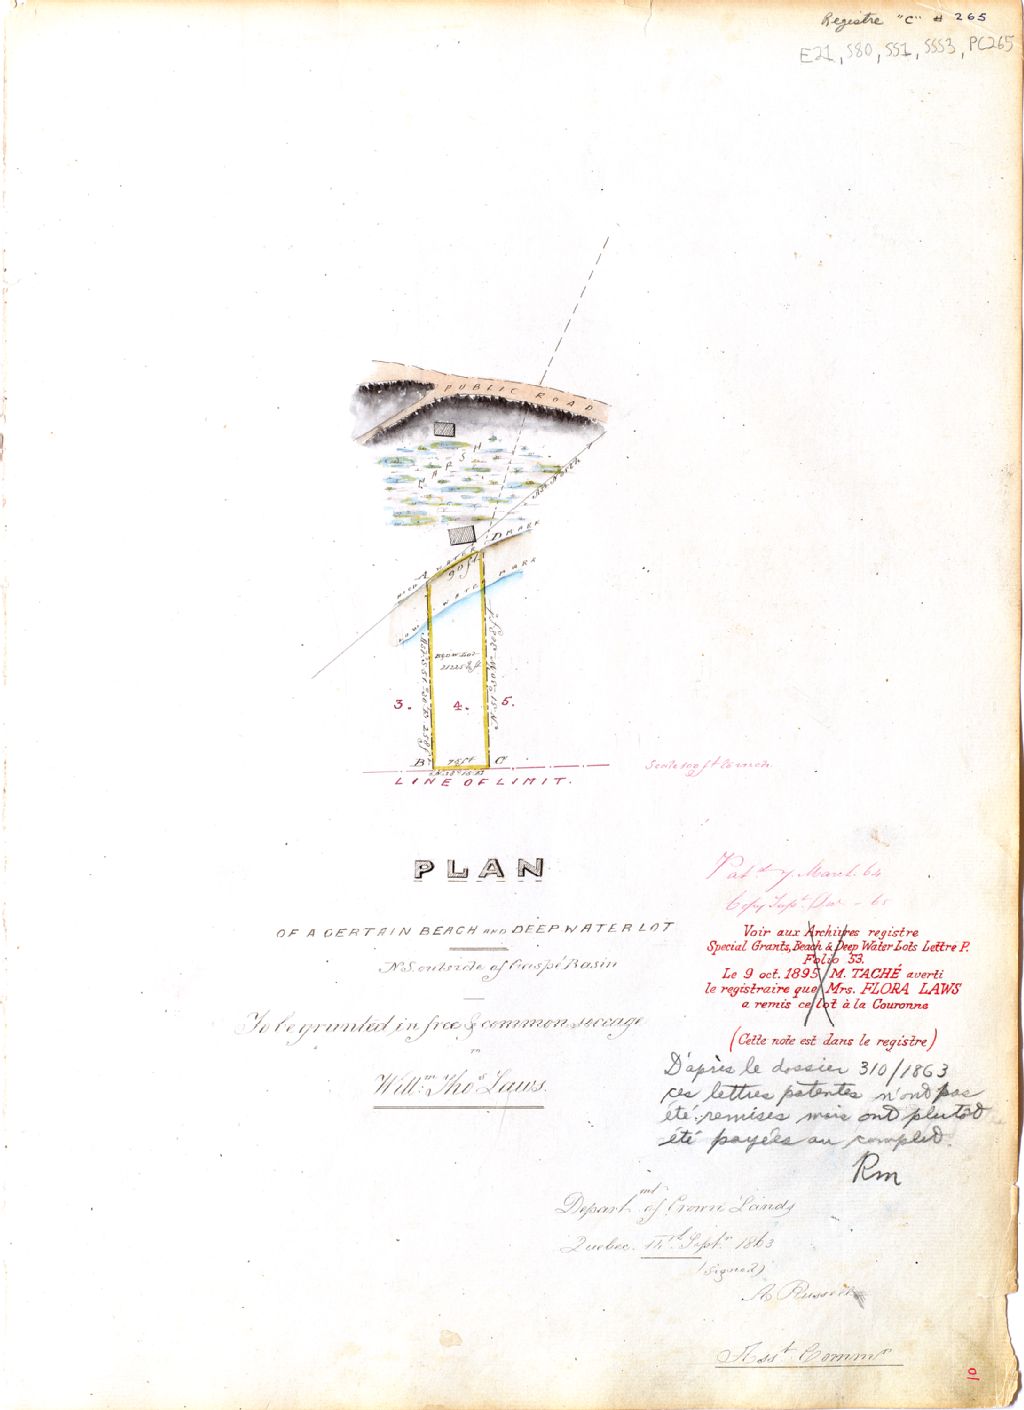 Registre "C" # 265
E21, S80, SS1, SSS3, PC265
PUBLIC ROAD
MARSH
Ast. North
HIGH WATER MARK
A
D
90 ft
LOW WATER MARK
B & D W Lot
21225 ft.
3.
4.
5.
B
75 ft
C
LINE OF LIMIT.
Scale 100 ft to inch.
PLAN
OF A CERTAIN BEACH AND DEEP WATER LOT
N.S. outside of Gaspé Basin
To be granted in free & common soccage
to
Willm. Thos Laws.
Patd 7 March 64
Voir aux Archives registre
Special Grants, Beach & Deep Water Lots Lettre P.
Folio 53.
Le 9 oct. 1895 M. TACHÉ averti
le registraire que Mrs. FLORA LAWS
a remis ce lot à la Couronne
(Cette note est dans le registre)
D'après le dossier 310/1863
ces lettres patentes n'ont pas
été remises mais ont plutôt
été payées au complet.
Rm
Departmt of Crown Lands
Quebec. Septr 1863
(Signed)
A Russell
Asst Commr
10